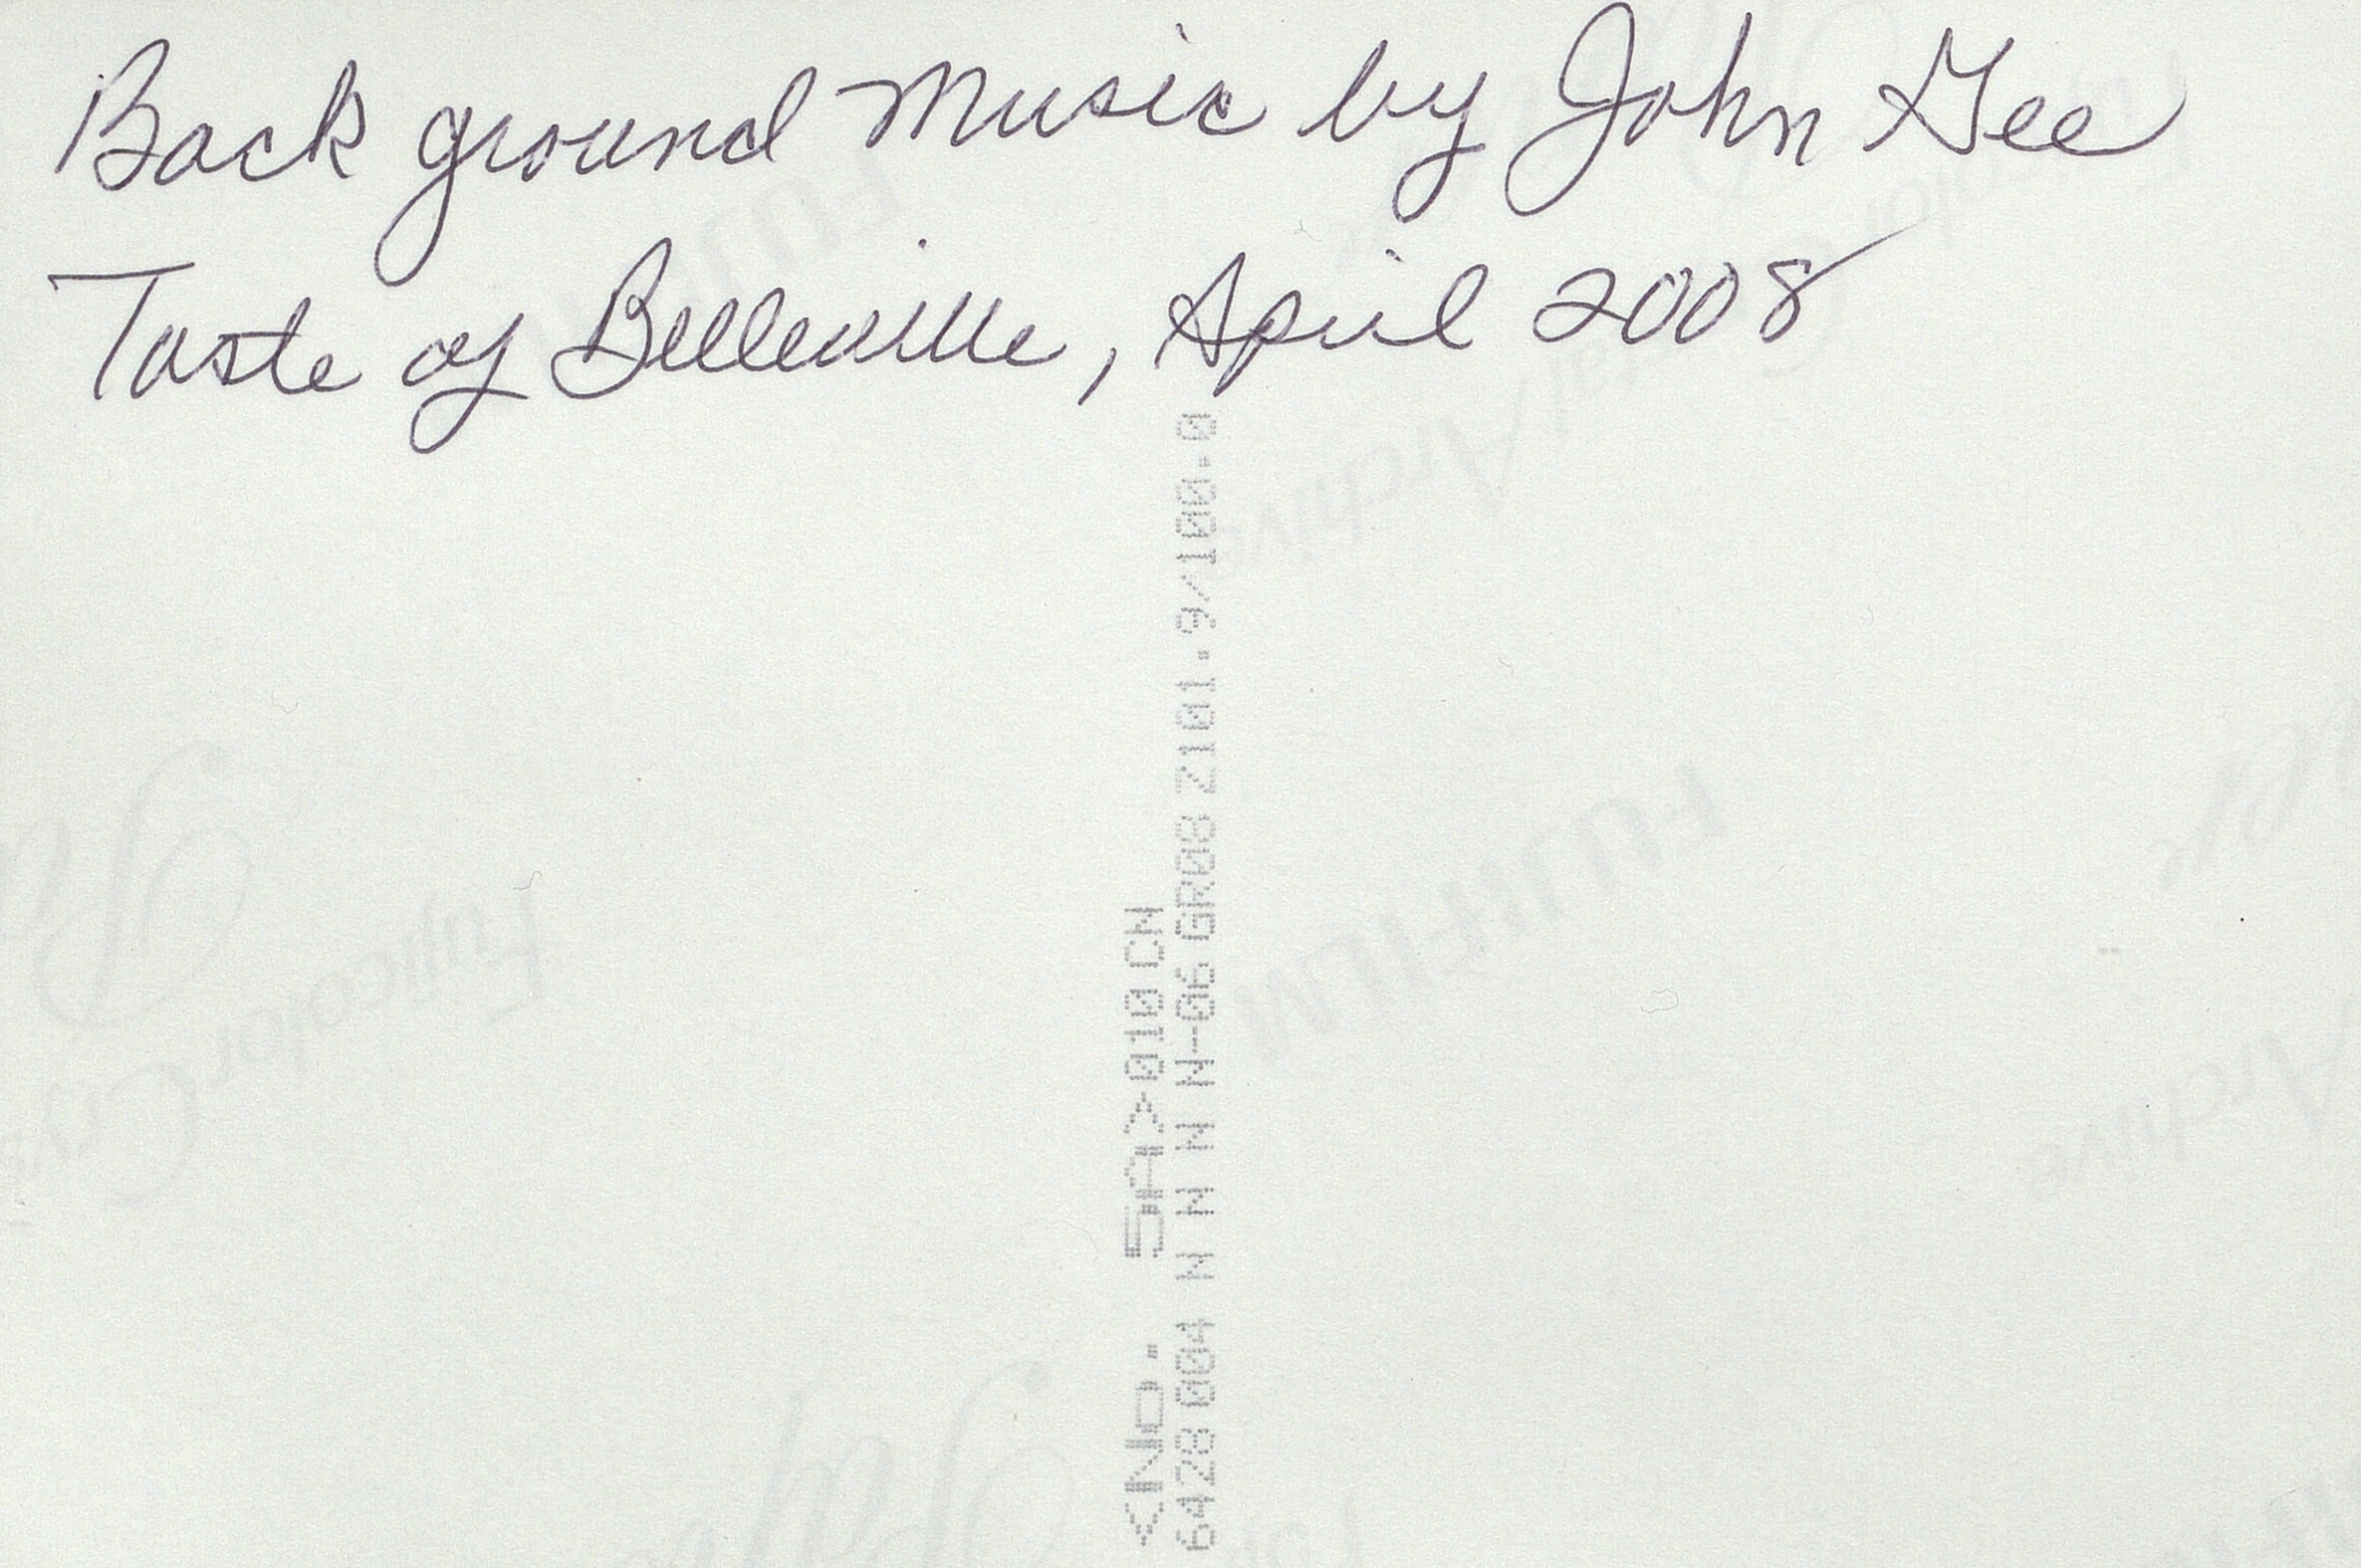 Back ground Music by John Gee
Taste of Belleville, April 2008
<No. 5A>010 CN
6428 004 N N N N-06 GR08 Z101.9/100.0
FUJIFILM
Fujicolor
Crystal
Archive